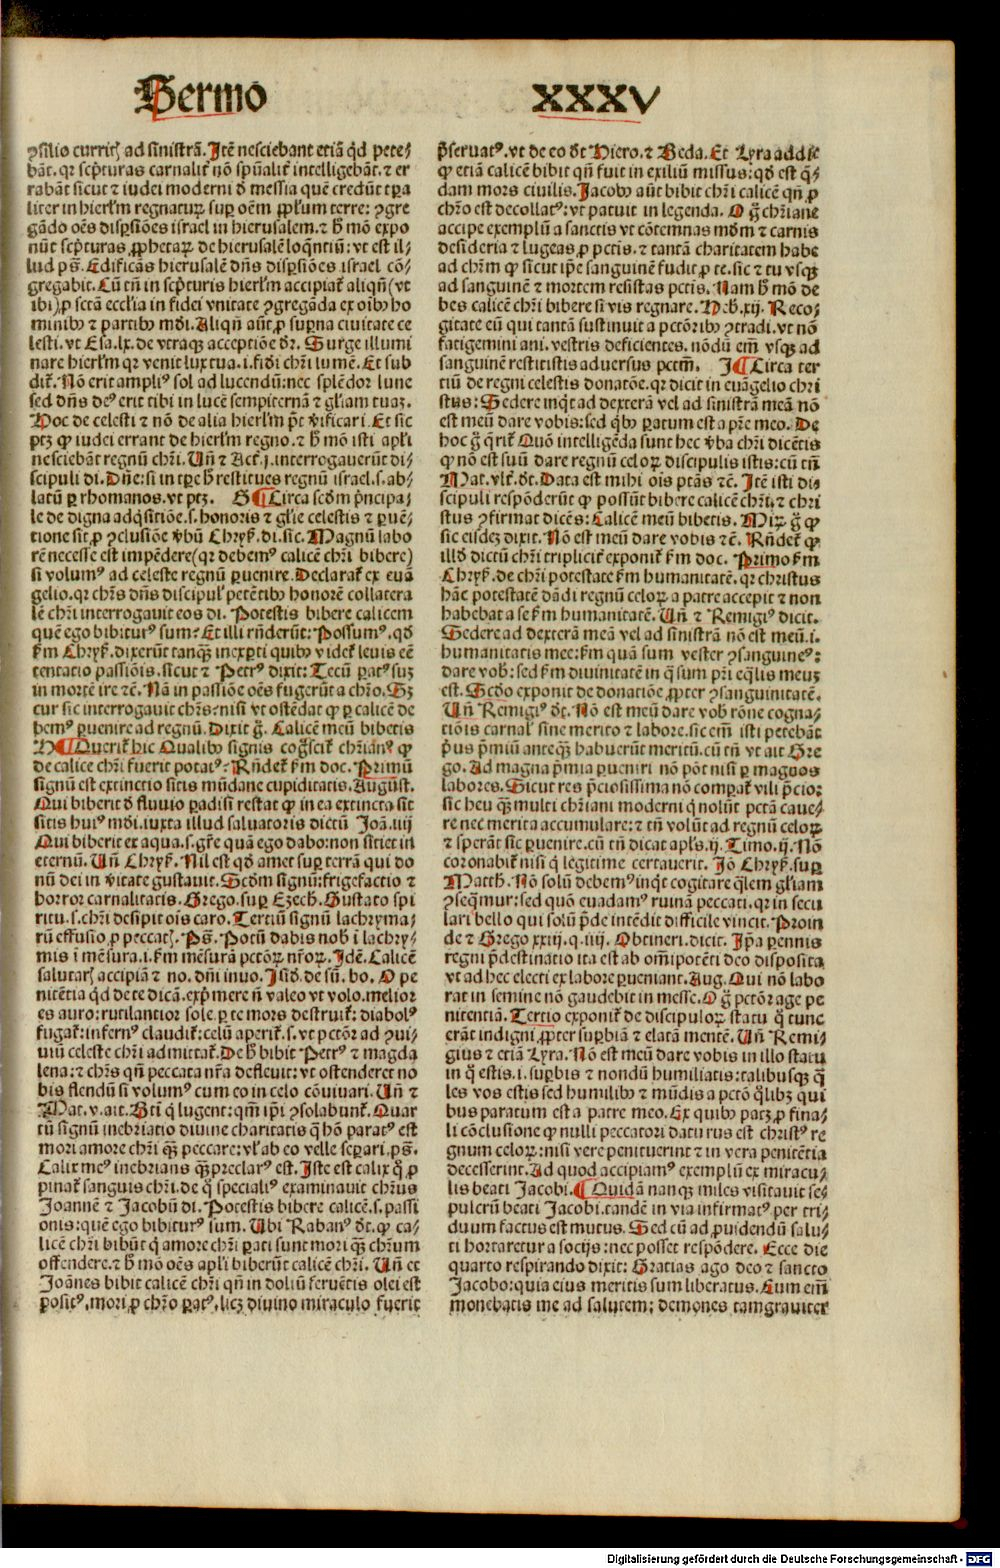 Sermo XXXV
ꝯsilio currit ad sinistrā. Itē nesciebant etiā qd pete⸗
bāt. qr scp̄turas carnalit nō spūalit intelligebāt. ⁊ er
rabāt sicut ⁊ iudei moderni d̄ messia quē credūt tꝑa
liter in hierl̄m regnaturꝝ suꝑ oēm ꝓpl̄um terre: ꝯgre
gādo oēs disꝑsiōes israel in hierusalem. ⁊ h̄ mō expo
nūt scp̄turas ꝓphetaꝝ de hierusalē loq̄ntiū: vt est il⸗
lud ps̄. Edificās hierusalē dn̄s disꝑsiōes israel cō⸗
gregabit. Cū tn̄ in scp̄turis hierl̄m accipiat̄ aliqn̄ (vt
ibi) ꝓ scta eccl̄ia in fidei vnitate ꝯgregāda ex oibꝰ ho
minibꝰ ⁊ partibꝰ mūdi. Aliqn̄ aūt ꝓ suꝑna ciuitate ce
lesti. vt Esa. lx. de vtraqꝫ acceptiōe dr̄. Surge illumi
nare hierl̄m qr venit lux tua. i. fidi chr̄i lumē. Et sub
dit̄. Nō erit ampliꝰ sol ad lucendū: nec splēdor lune
sed dn̄s deꝰ erit tibi in lucē sempiternā ⁊ gl̄iam tuaꝫ.
Hoc de celesti ⁊ nō de alia hierl̄m pt̄ v̄ificari. Et sic
ptꝫ ꝙ iudei errant de hierl̄m regno. ⁊ h̄ mō isti apl̄i
nesciebāt regnū chr̄i. Vn̄ ⁊ Act̄. j. interrogauerūt di⸗
scipuli di. Dn̄e: si in tꝑe h̄ restitues regnū israel. s. ab⸗
latū ꝑ rhomanos. vt ptꝫ. G ¶ Circa scd̄m p̄ncipa⸗
le de digna adq̄sitiōe. s. honoris ⁊ gl̄ie celestis ⁊ ꝑuē⸗
tione sit ꝓ ꝯclusiōe v̄bū Chryſ̄. di. sic. Magnū labo
rē necesse est impēdere (qr debemꝰ calicē chr̄i bibere)
si volumꝰ ad celeste regnū ꝑuenire. Declarat̄ ex euā
gelio. qr chr̄s dn̄s discipulꝭ petētibꝰ honorē collatera
lē chr̄i interrogauit eos di. Potestis bibere calicem
quē ego bibiturꝰ sum? Et illi rn̄derūt: Possumꝰ. qd
ẜm Chryſ̄. dixerūt tanqꝫ inexꝑti quibꝰ videt̄ leuis eē
tentatio passiōis. sicut ⁊ Petrꝰ dixit: Tecū ꝑatꝰ suꝫ
in mortē ire ⁊ē. Nā in passiōe oēs fugerūt a chr̄o. Sꝫ
cur sic interrogauit chr̄s: nisi vt ostēdat ꝙ ꝑ calicē de
bemꝰ ꝑuenire ad regnū. Dixit g̊. Calicē meū bibetis
H ¶ Querit̄ hic Qualibꝰ signis cog̊scit̄ chr̄ianꝰ ꝙ
de calice chr̄i fuerit potatꝰ. Rn̄det̄ ẜm doc. Primū
signū est extinctio sitis mūdane cupiditatis. August̄.
Qui biberit d̄ fluuio ꝑadisi restat ꝙ in ea extincta sit
sitis huiꝰ mūdi. iuxta illud saluatoris dictū Joā. iiij
Qui biberit ex aqua. s. gr̄e quā ego dabo: non sitiet in
eternū. Vn̄ Chryſ̄. Nil est qd amet suꝑ terrā qui do
nū dei in v̄itate gustauit. Scd̄m signū: frigefactio ⁊
horror carnalitatis. Grego. suꝑ Ezech. Gustato spi
ritu. s. chr̄i desipit oīs caro. Tertiū signū lachryma⸗
rū effusio ꝓ peccatꝭ. Ps̄. Potū dabis nob̄ ī lachry⸗
mis ī mēsura. i. ẜm mēsurā pctōꝝ nr̄oꝝ. Idē. Calicē
salutarꝭ accipiā ⁊ no. dn̄i inuo. Isid̄. de sū. bo. O pe
nitētia qd de te dicā. exp̄mere n̄ valeo vt volo. melior
es auro: rutilantior sole. ꝑ te mors destruit̄: diabolꝰ
fugat̄: infernꝰ claudit̄: celū aperit̄. s. vt pctōr ad ꝯui⸗
uiū celeste chr̄i admittat̄. De h̄ bibit Petrꝰ ⁊ magda
lena: ⁊ chr̄s qn̄ peccata nr̄a defleuit: vt ostenderet no
bis flendū si volumꝰ cum eo in celo cōuiuari. Vn̄ ⁊
Mat. v. ait. Bt̄i q̇ lugent: qm̄ ip̄i ꝯsolabunt̄. Quar
tū signū inebriatio diuine charitatis q̇ hō paratꝰ est
mori amore chr̄i qꝫ peccare: vl̓ ab eo velle seꝑari. ps̄.
Calix meꝰ inebrians qꝫ preclarꝰ est. Iste est calix q̇ ꝓ
pinat̄ sanguis chr̄i. de q̊ specialiꝰ examinauit chr̄us
Joannē ⁊ Jacobū di. Potestis bibere calicē. s. passi
onis: quē ego bibiturꝰ sum. Ubi Rabanꝰ dt̄. ꝙ ca⸗
licē chr̄i bibūt q̇ amore chr̄i ꝑati sunt mori qꝫ chr̄um
offendere. ⁊ h̄ mō oēs apl̄i biberūt calicē chr̄i. Vn̄ et
Joānes bibit calicē chr̄i qn̄ in doliū feruētis olei est
positꝰ. mori ꝓ chr̄o ꝑatꝰ. licꝫ diuino miraculo fuerit
p̄seruatꝰ. vt de eo dt̄ Hiero. ⁊ Beda. Et Lyra addit
ꝙ etiā calicē bibit qn̄ fuit in exiliū missus: qd est q̄⸗
dam mors ciuilis. Jacobꝰ aūt bibit chr̄i calicē qn̄ ꝓ
chr̄o est decollatꝰ: vt patuit in legenda. O g̊ chr̄iane
accipe exemplū a sanctis vt cōtemnas mūdm ⁊ carnis
desideria ⁊ lugeas ꝓ pctīs. ⁊ tantā charitatem habe
ad chr̄m ꝙ sicut ip̄e sanguinē fudit ꝓ te. sic ⁊ tu vsqꝫ
ad sanguinē ⁊ mortem resistas pctīs. Nam h̄ mō de
bes calicē chr̄i bibere si vis regnare. Heb̄. xij. Reco⸗
gitate eū qui tantā sustinuit a pctōribꝰ ꝯtradi. vt nō
fatigemini ani. vestris deficientes. nōdū em̄ vsqꝫ ad
sanguinē restitistis aduersus pctm̄. I ¶ Circa ter
tiū de regni celestis donatōe. qr dicit in euāgelio chri
stus: Sedere inq̇t ad dexterā vel ad sinistrā meā nō
est meū dare vobis: sed qbꝰ ꝑatum est a pr̄e meo. De
hoc g̊ q̄rit̄ Quō intelligēda sunt hec v̄ba chr̄i dicētis
ꝙ nō est suū dare regnū celoꝝ discipulis istis: cū tn̄
Mat. vlt̄. dt̄. Data est mihi oīs ptās ⁊ē. Itē isti di⸗
scipuli respōderūt ꝙ possūt bibere calicē chr̄i: ⁊ chri
stus ꝯfirmat dicēs: Calicē meū bibetis. Mirꝝ g̊ ꝙ
sic eisdeꝫ dixit. Nō est meū dare vobis ⁊ē. Rn̄det̄ ꝙ
illd̄ dictū chr̄i triplicit̄ exponit̄ ẜm doc. Primo ẜm
Chryſ̄. de chr̄i potestate ẜm humanitatē. qr christus
hāc potestatē dādi regnū celoꝝ a patre accepit ⁊ non
habebat a se ẜm humanitatē. Vn̄ ⁊ Remigiꝰ dicit.
Sedere ad dexterā meā vel ad sinistrā nō est meū. i.
humanitatis mee: ẜm quā sum vester ꝯsanguineꝰ:
dare vob̄: sed ẜm diuinitatē in q̄ sum pr̄i eq̄lis meuꝫ
est. Scdo exponit de donatiōe ꝓpter ꝯsanguinitatē.
Vn̄ Remigiꝰ dt̄. Nō est meū dare vob̄ rōne cogna⸗
tiōis carnalꝭ sine merito ⁊ labore. sic em̄ isti petebāt
p̄us p̄miū anteqꝫ habuerūt meritū. cū tn̄ vt ait Gre
go. Ad magna p̄mia ꝑueniri nō pōt nisi ꝑ magnos
labores. Sicut res p̄ciosissima nō comꝑat̄ vili p̄cio:
sic heu qꝫ multi chr̄iani moderni q̇ nolūt pctā caue⸗
re nec merita accumulare: ⁊ tn̄ volūt ad regnū celoꝝ
⁊ sperāt sic ꝑuenire. cū tn̄ dicat apl̄s. ij. Timo. ij. Nō
coronabit̄ nisi q̇ legitime certauerit. Jō Chryſ̄. suꝑ
Matth̄. Nō solū debemꝰ inq̇t cogitare q̄lem gl̄iam
ꝯseq̄mur: sed quō euadamꝰ ruinā peccati. qr in secu
lari bello qui solū p̄de intēdit difficile vincit. Proin
de ⁊ Grego xxiij. q. iiij. Obtineri. dicit. Ip̄a ꝑennis
regni p̄destinatio ita est ab om̄ipotēti deo disposita
vt ad hec electi ex labore ꝑueniant. Aug. Qui nō labo
rat in semine nō gaudebit in messe. O g̊ pctōr age pe
nitentiā. Tertio exponit̄ de discipuloꝝ statu q̊ tunc
erāt indigni ꝓpter suꝑbiā ⁊ elatā mentē. Vn̄ Remi⸗
gius ⁊ etiā Lyra. Nō est meū dare vobis in illo statu
in q̊ estis. i. suꝑbis ⁊ nondū humiliatis: talibusqꝫ q̄
les vos estis sed humilibꝰ ⁊ mūdis a pctō q̇libꝫ qui
bus paratum est a patre meo. Ex quibꝰ patꝫ ꝓ fina⸗
li cōclusione ꝙ nulli peccatori daturus est christꝰ re
gnum celoꝝ: nisi vere penituerint ⁊ in vera penitētia
decesserint. Ad quod accipiamꝰ exemplū ex miracu⸗
lis beati Jacobi. ¶ Quidā nanqꝫ miles visitauit se⸗
pulcrū beati Jacobi. tandē in via infirmatꝰ per tri⸗
duum factus est mutus. Sed cū ad ꝓuidendū salu⸗
ti hortaretur a socijs: nec posset respōdere. Ecce die
quarto respirando dixit: Gratias ago deo ⁊ sancto
Jacobo: quia eius meritis sum liberatus. Cum em̄
monebatis me ad salutem: demones tam grauiter
Digitalisierung gefördert durch die Deutsche Forschungsgemeinschaft - DFG